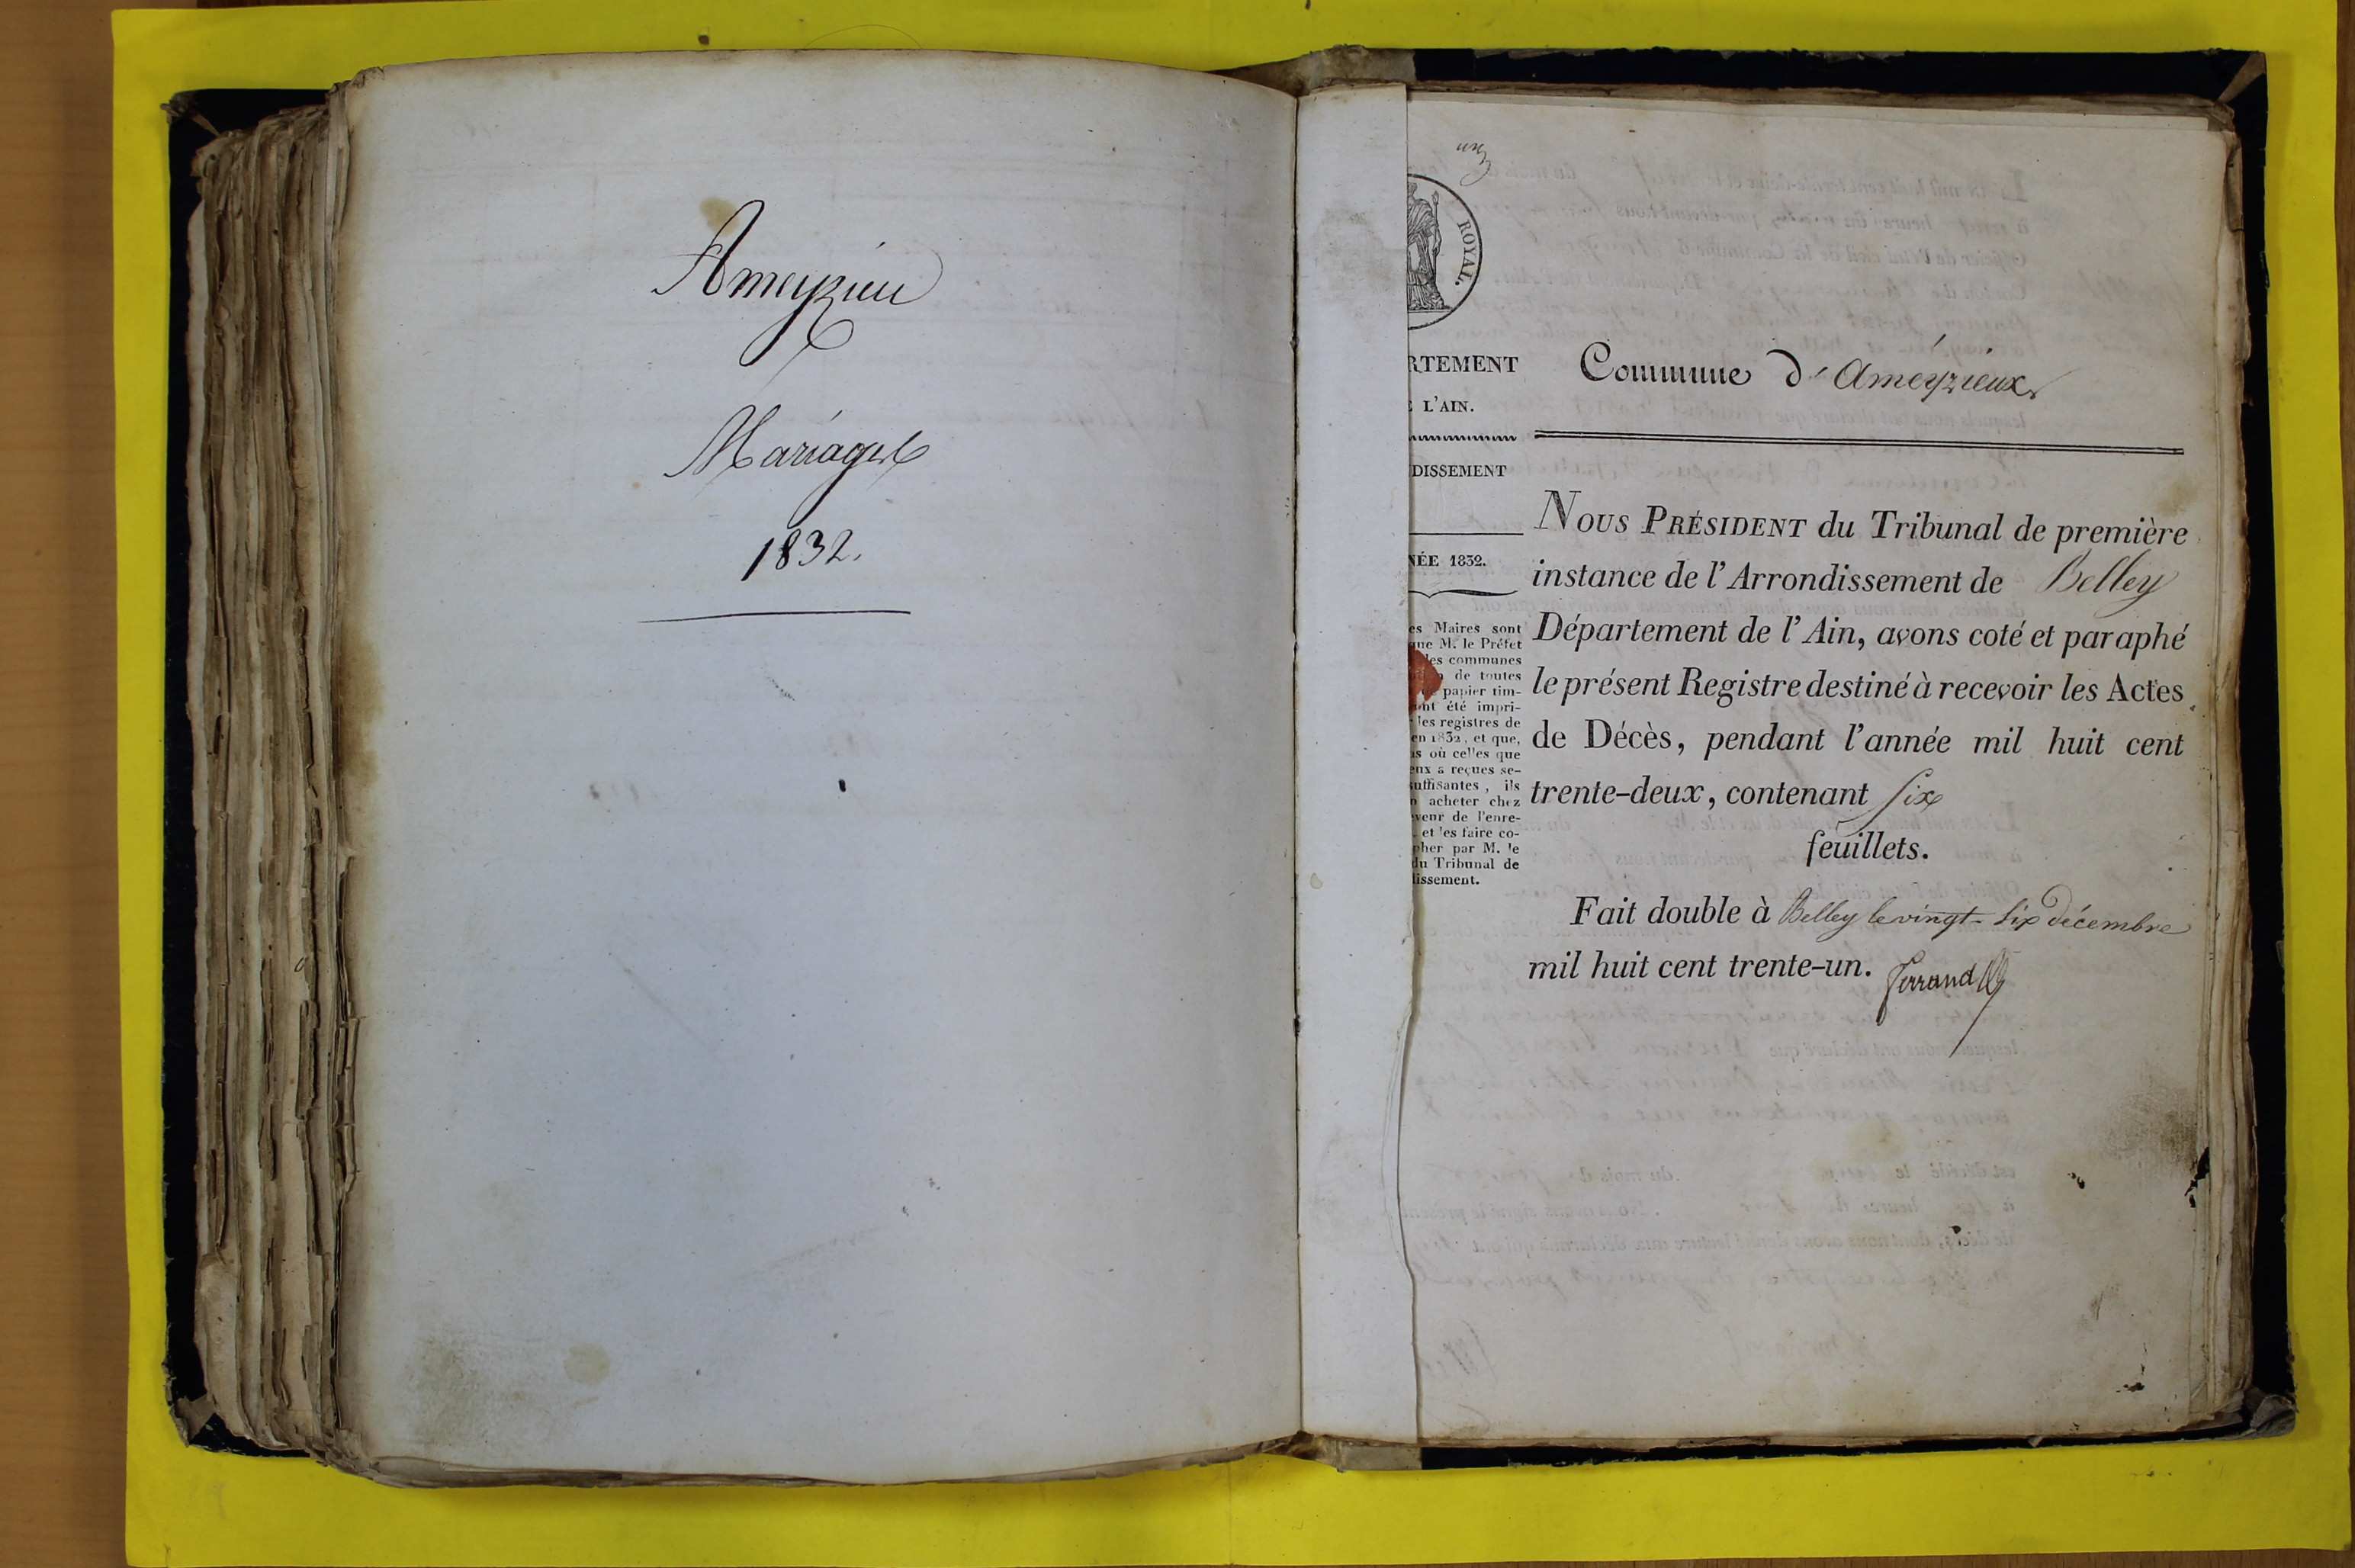 Ameyzieu
Mariages
1832.
un
ROYAL.
RTEMENT
L'AIN.
DISSEMENT
NÉE 1832.
es Maires sont
que M. le Préfet
les communes
de toutes
papier tim-
ont été impri-
les registres de
en 1832, et que,
as où celles que
eux a reçues se-
suffisantes, ils
acheter chez
eveur de l'enre-
et les faire co-
pher par M. le
du Tribunal de
dissement.
Commune d'Ameyzieux
NOUS PRÉSIDENT du Tribunal de première
instance de l'Arrondissement de Belley
Département de l'Ain, avons coté et paraphé
le présent Registre destiné à recevoir les Actes
de Décès, pendant l'année mil huit cent
trente-deux, contenant six
feuillets.
Fait double à Belley le vingt-six décembre
mil huit cent trente-un. Ferrand